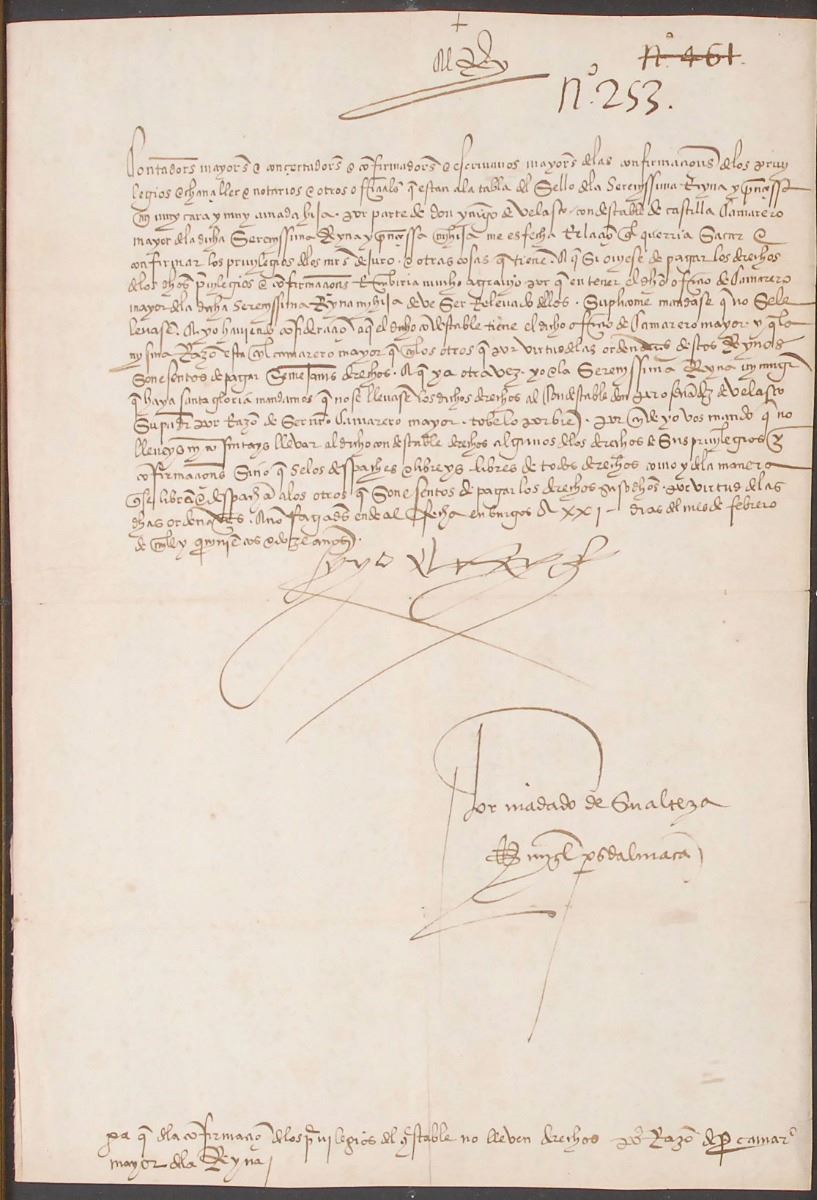 +
El Rey
Nº 461.
Nº 253.
Contadores mayores e concertadores e confirmadores e escrivanos mayores delas confirmaciones delos previ
legios e chanciller e notarios e otros oficiales q estan ala tabla del Sello dela Serenissima Reyna y princessa
mi muy cara y muy amada hija. por parte de don ynigo de Velasco condestable de castilla Camarero
mayor dela dicha Serenissima Reyna y princessa mi hija me es fecha Relacion que querria Sacar e
confirmar los previlegios delos mrs de juro. e otras cosas q tiene. A que Si oviese de pagar los derechos
delos dhos previlegios e confirmaciones Recibiria mucho agravio por que en tener el dho oficio de Camarero
mayor dela dicha Serenissima Reyna mi hija deve Ser Relevado dellos. Suplicome mandase que no Sele
levasen. E yo haviendo consideracion a que el dicho condestable tiene el dicho oficio de Camarero mayor. y q la
mysma Razon esta en el camarero mayor que en los otros que por virtud delas ordenanças destos Reynos
Son esentos de pagar Semejantes derechos. A que ya otra vez. yo e la Serenissima Reyna mi muger
q haya santa gloria mandamos que no se llevasen los dichos derechos al Condestable don Bernardino de Velasco
Su padre por Razon de Ser Camarero mayor. tovelo por bien. por ende yo vos mando que no
lleveys ni consintays llevar al dicho condestable derechos algunos delos derechos de Sus previlegios e
confirmaciones Sino que Selos despacheys e libreys libres de todos derechos como y dela manera
que se libran e despachan alos otros que Son esentos de pagar los derechos suso dhos. por virtud delas
dhas ordenanças. E non fagades ende al fecha en burgos a XXI dias del mes de febrero
de mill y quinientos e doze años.
yo el Rey
Por mādado de Su alteza
mygl prs dalmaçā
pa q dla confirmacion delos previlegios del condestable no lleven derechos por Razon de Ser camarº
mayor dela Reyna